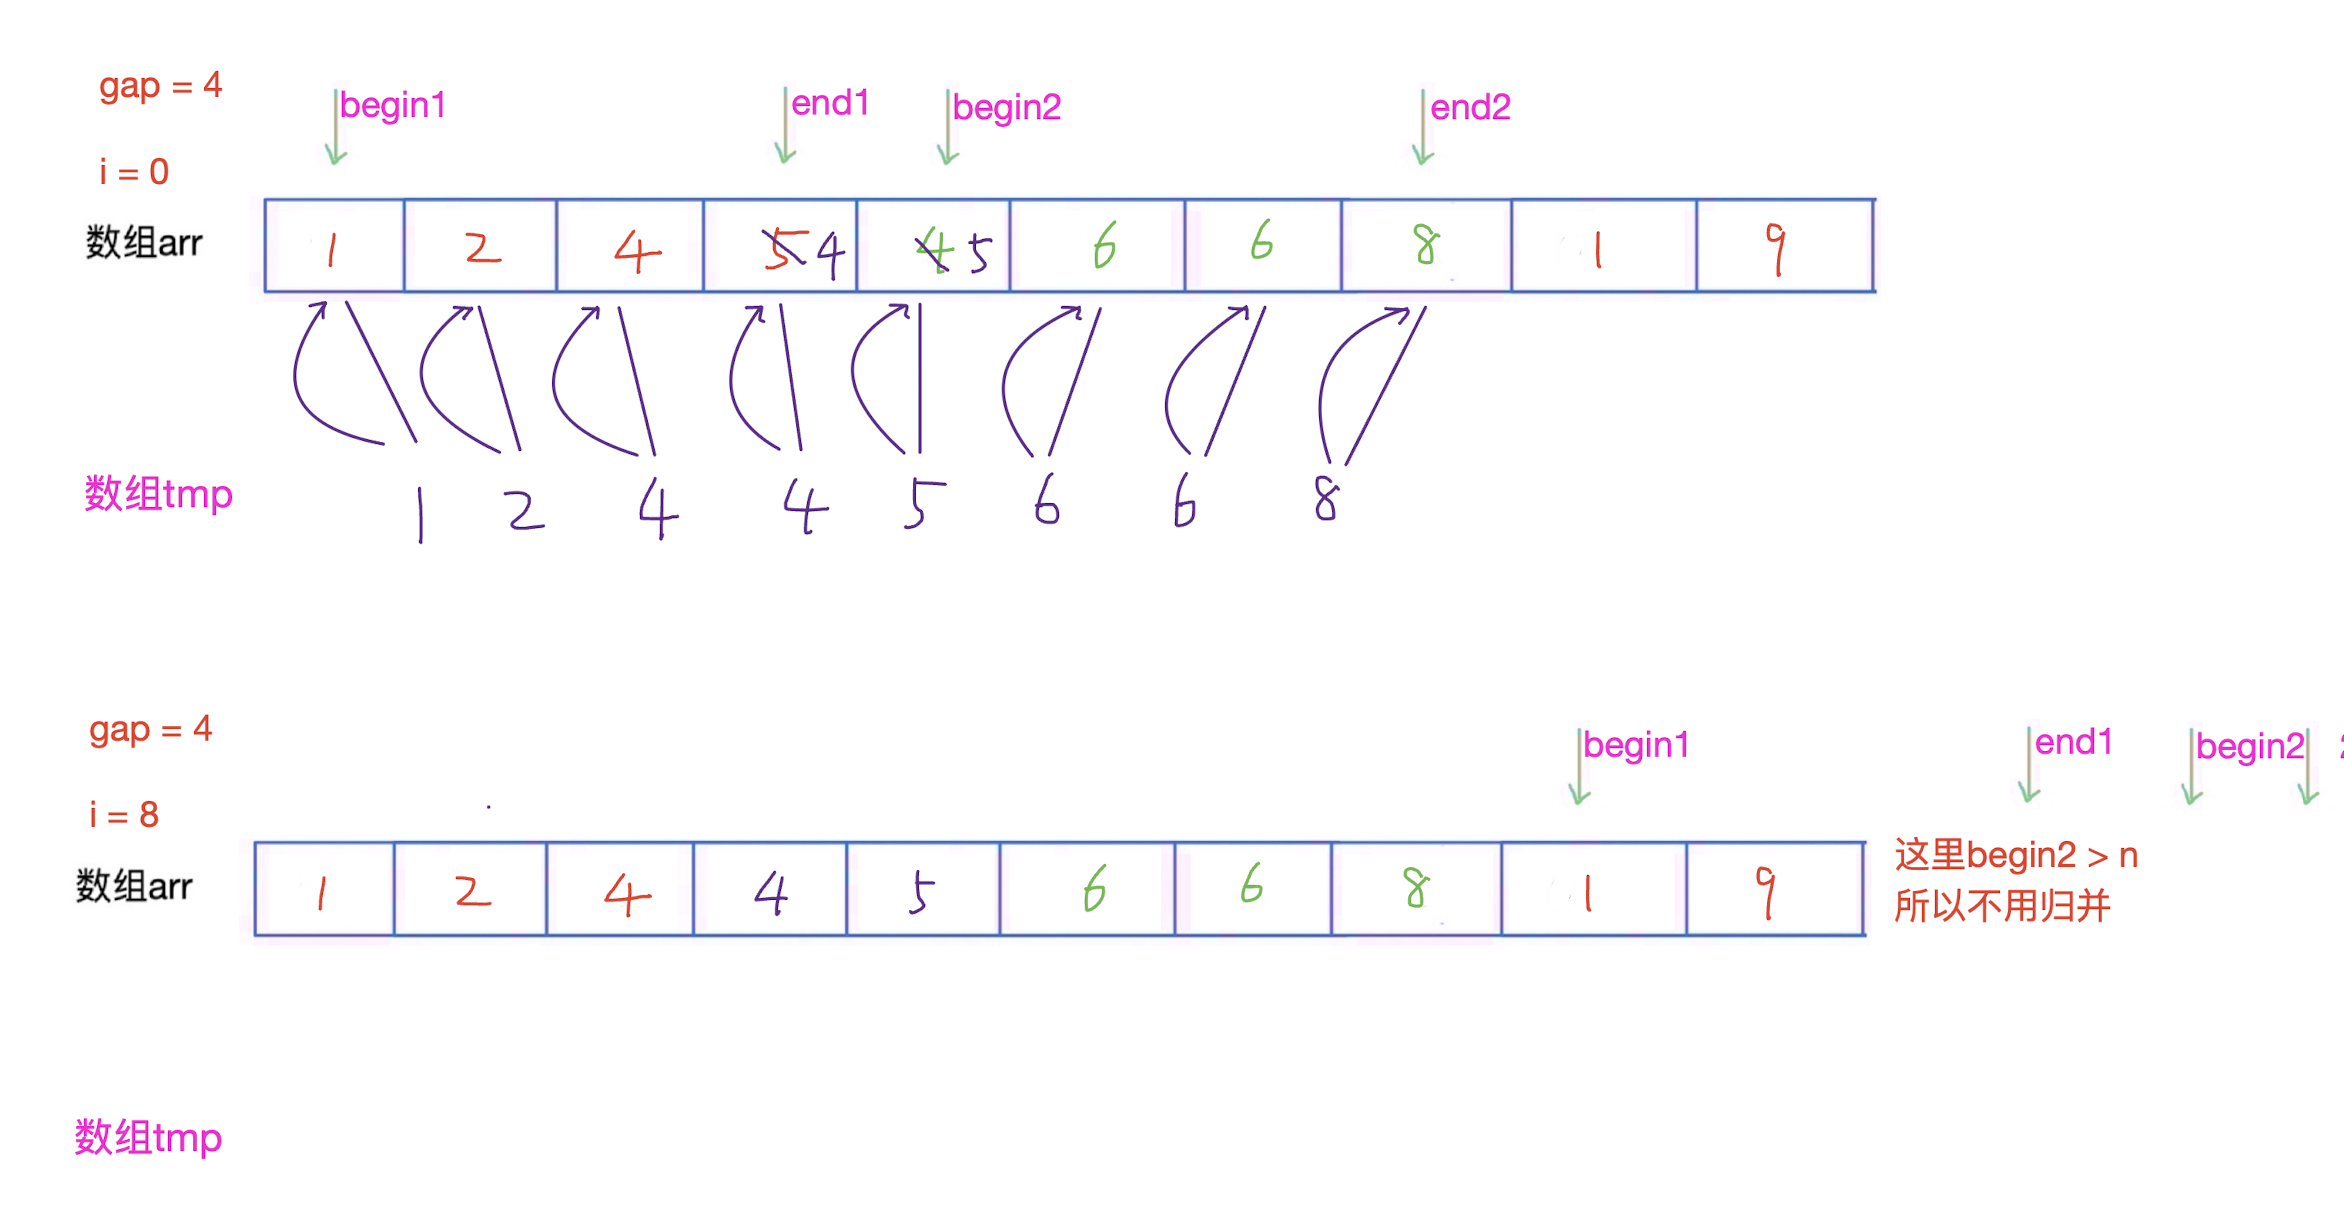 gap = 4
begin1 end1 begin2 end2
i = 0
数组arr 1 2 4 5 4 4 5 6 6 8 1 9
数组tmp 1 2 4 4 5 6 6 8
gap = 4
begin1 end1 begin2
i = 8
数组arr 1 2 4 4 5 6 6 8 1 9
这里begin2 > n
所以不用归并
数组tmp